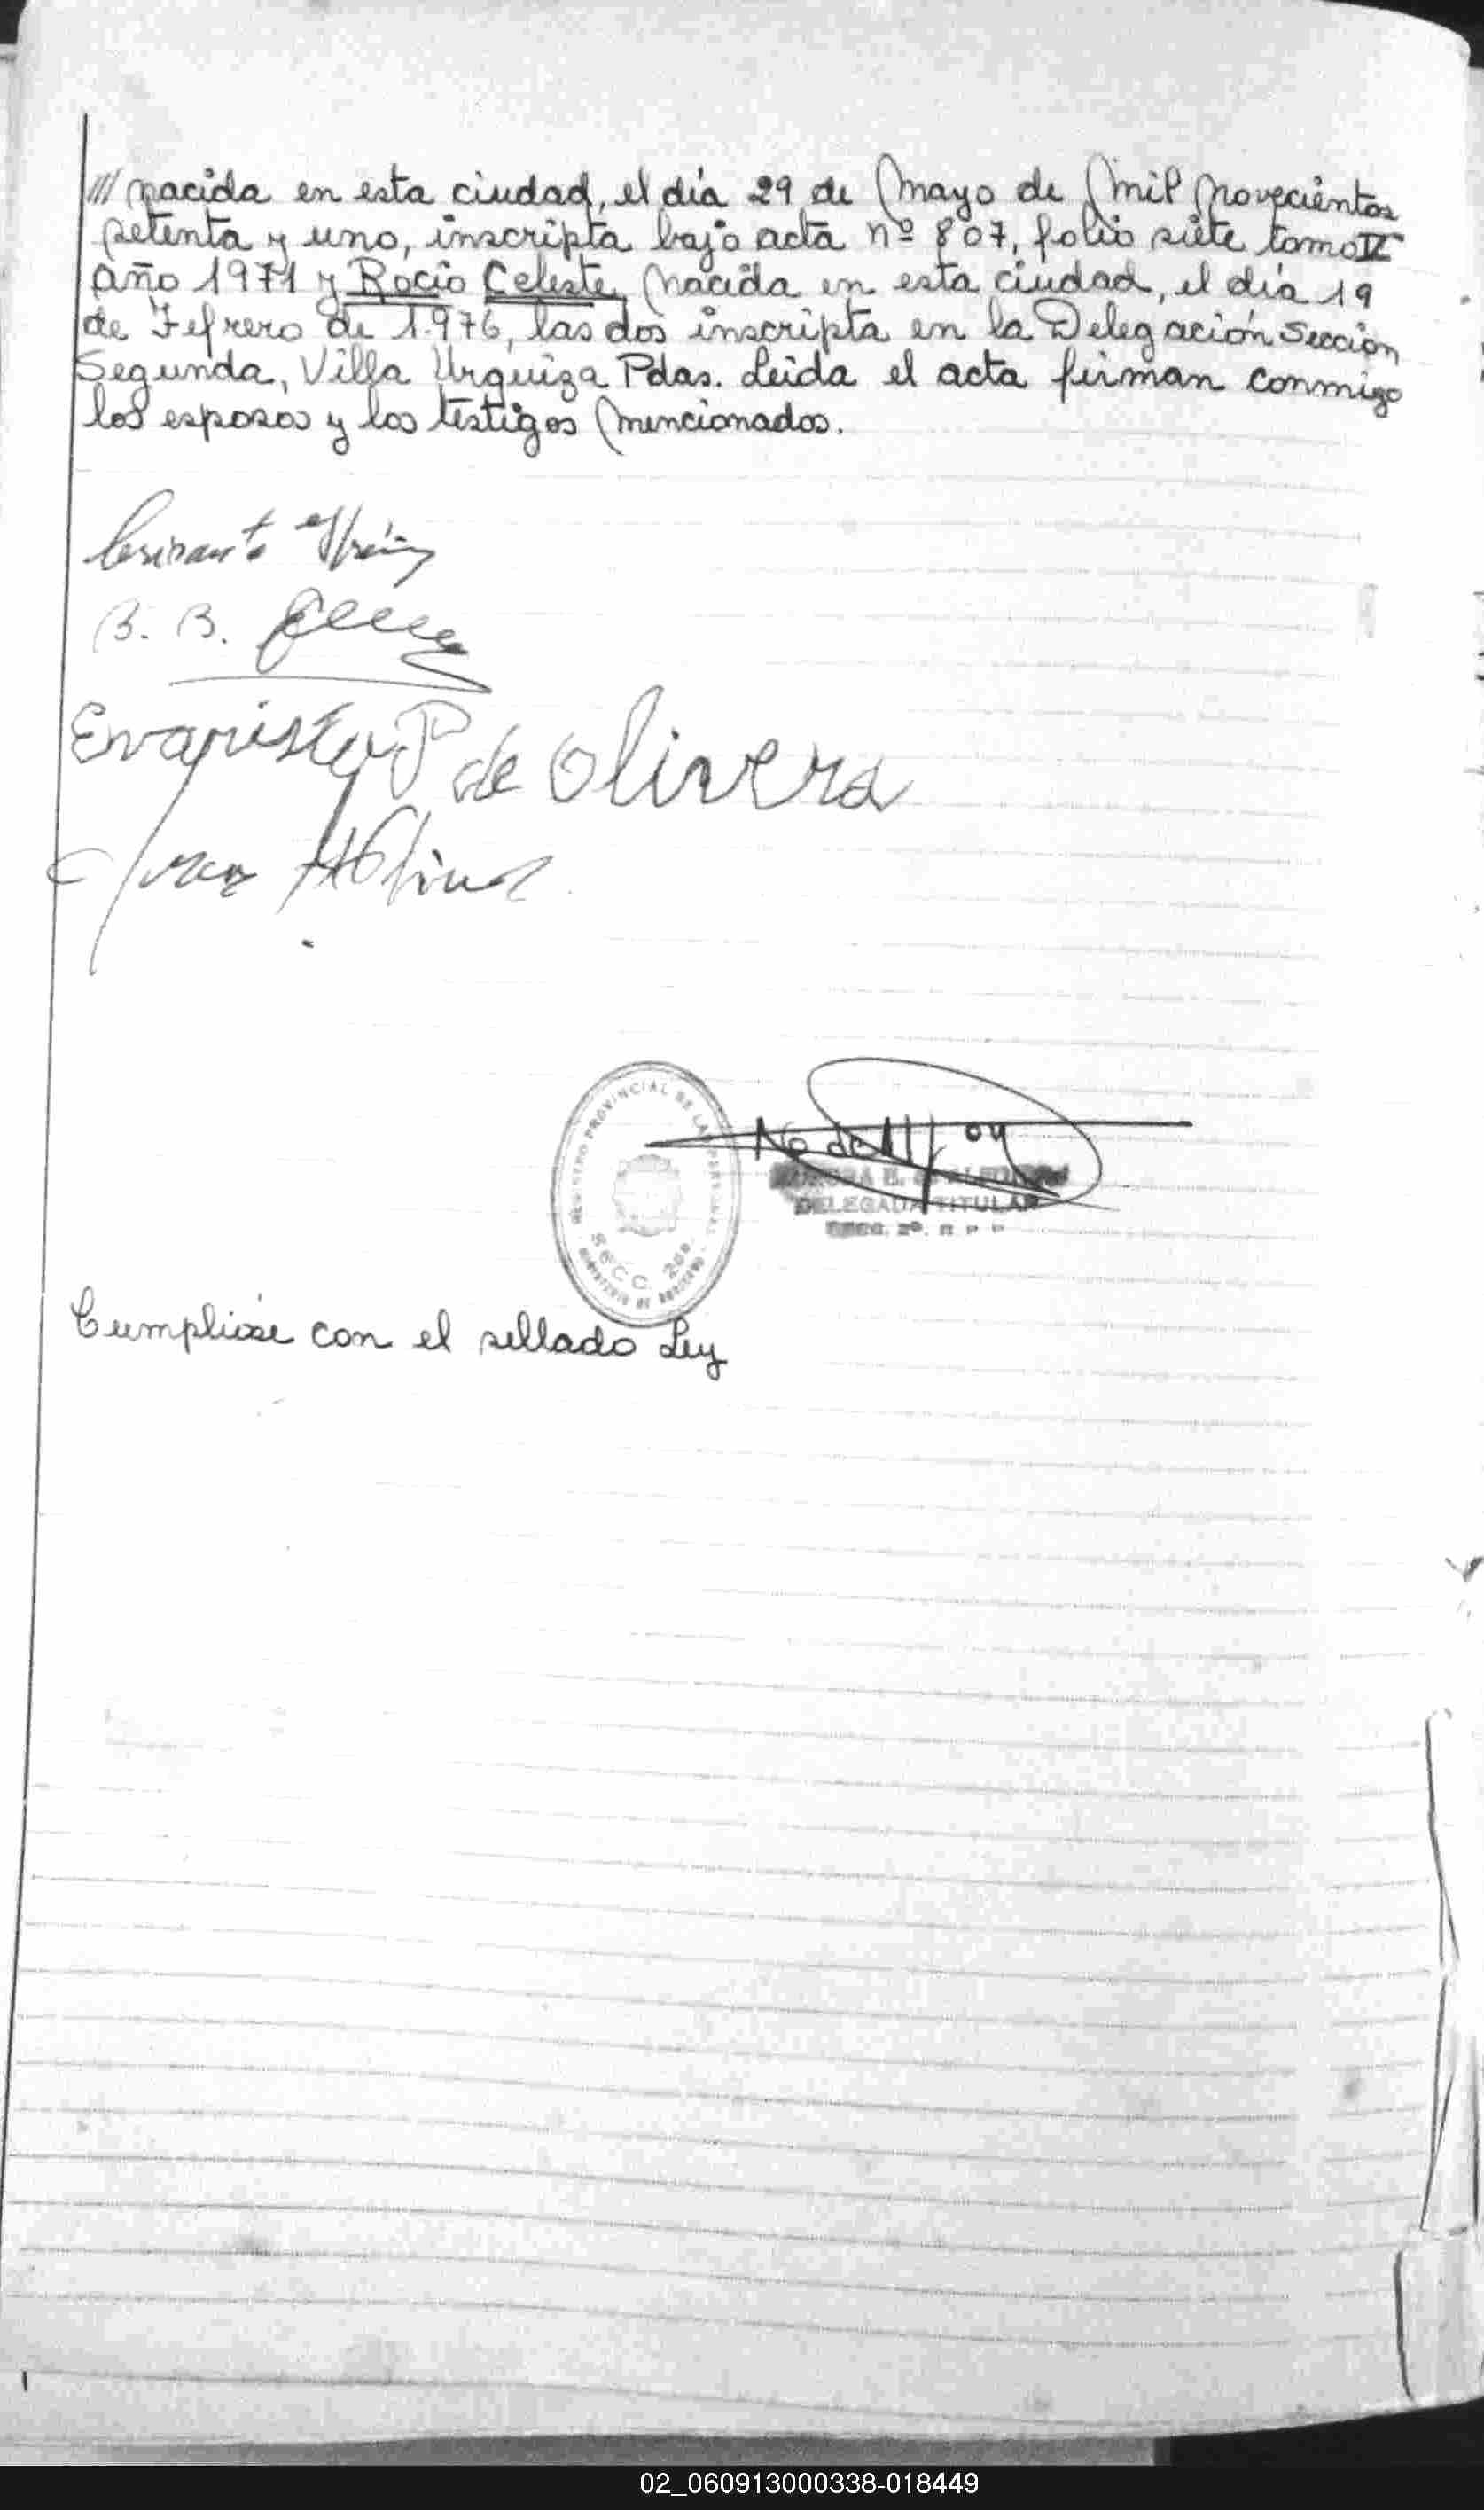 /// nacida en esta ciudad, el día 29 de Mayo de Mil Novecientos
setenta y uno, inscripta bajo acta nº 807, folio siete tomo IV
año 1971 y Rocio Celeste, Nacida en esta ciudad, el día 19
de Febrero de 1.976, las dos inscripta en la Delegación Sección
Segunda, Villa Urquiza Pdas. Leida el acta firman conmigo
los esposos y los testigos Mencionados.
B. B.
Evaristo P de Olivera
REGISTRO PROVINCIAL DE LAS PERSONAS
SECC. 2da.
MINISTERIO DE GOBIERNO
DELEGADA TITULAR
SECC. 2º. R P P
Cumplióse con el sellado Ley
02_060913000338-018449